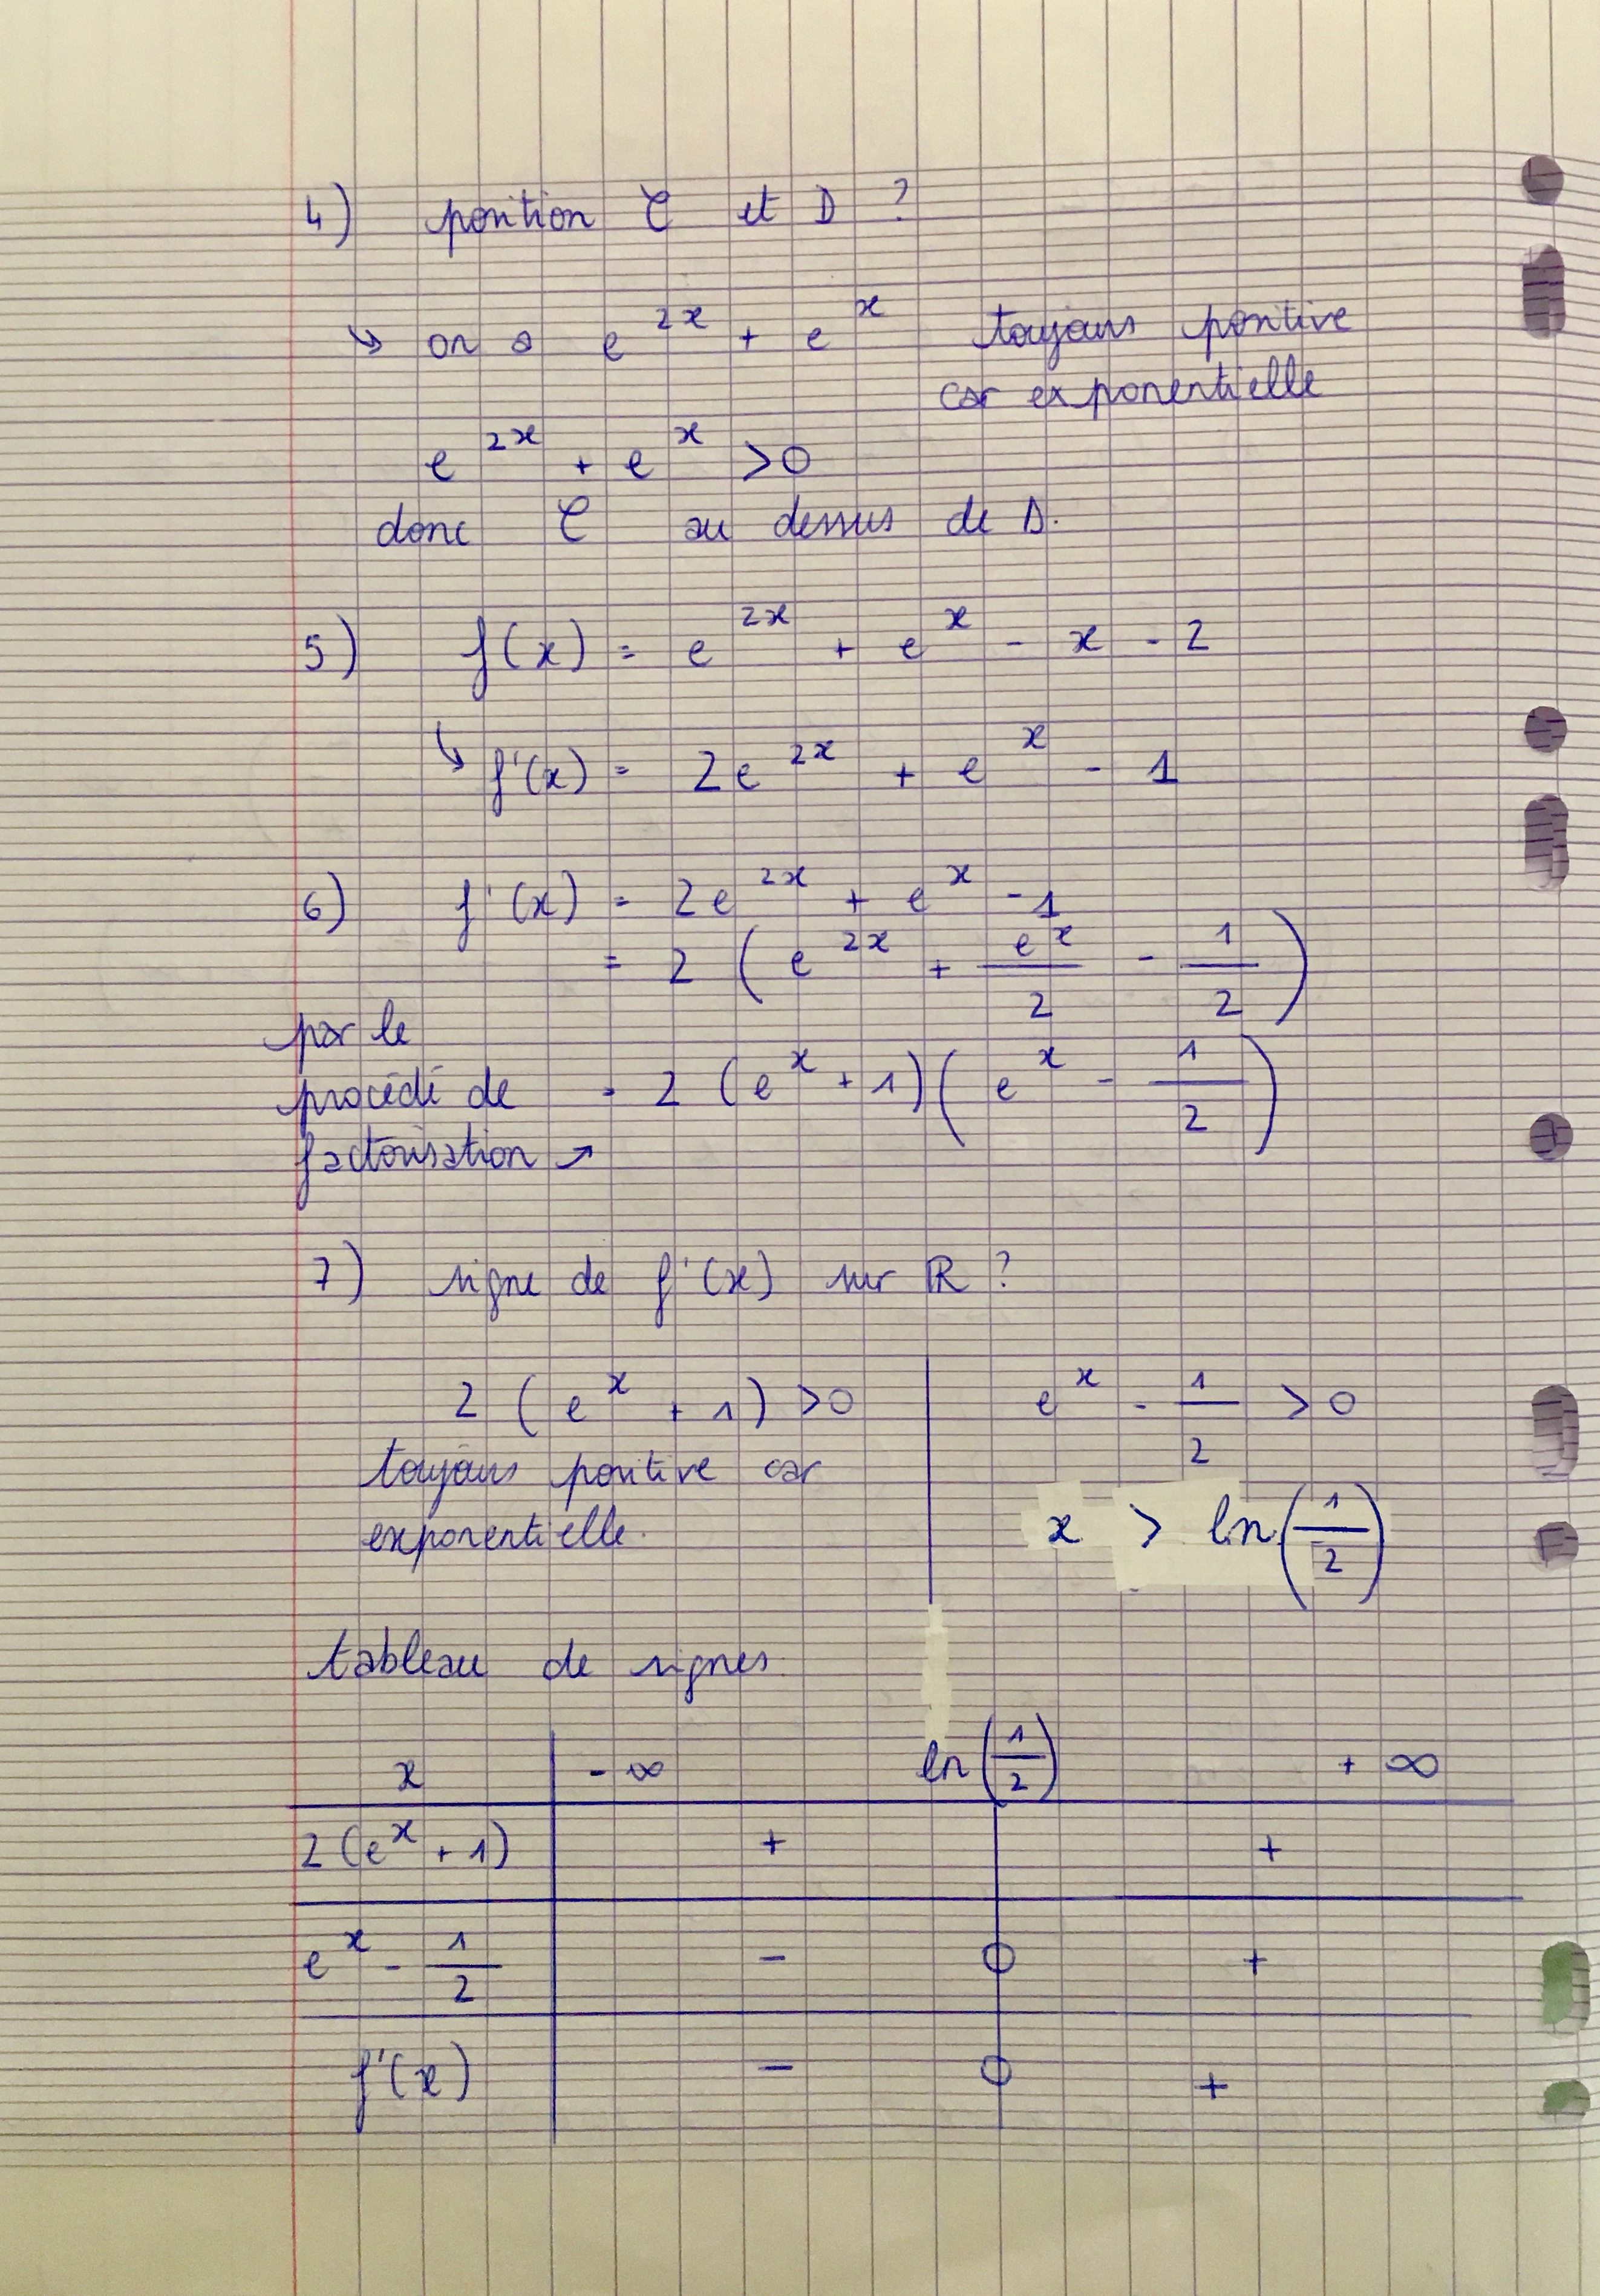 4) position C et D ?
↳ on a e^{2x} + e^{x} toujours positive
car exponentielle
e^{2x} + e^{x} > 0
donc C au dessus de D.
5) f(x) = e^{2x} + e^{x} - x - 2
↳ f'(x) = 2e^{2x} + e^{x} - 1
6) f'(x) = 2e^{2x} + e^{x} - 1
= 2 ( e^{2x} + \frac{e^{x}}{2} - \frac{1}{2} )
par le
procédé de = 2 (e^{x} + 1) ( e^{x} - \frac{1}{2} )
factorisation ↗
7) signe de f'(x) sur ℝ ?
2 (e^{x} + 1) > 0 | e^{x} - \frac{1}{2} > 0
toujours positive car
exponentielle. | x > ln(\frac{1}{2})
tableau de signes
x | -∞ ln(\frac{1}{2}) +∞
2(e^{x} + 1) | + | +
e^{x} - \frac{1}{2} | - 0 +
f'(x) | - 0 +